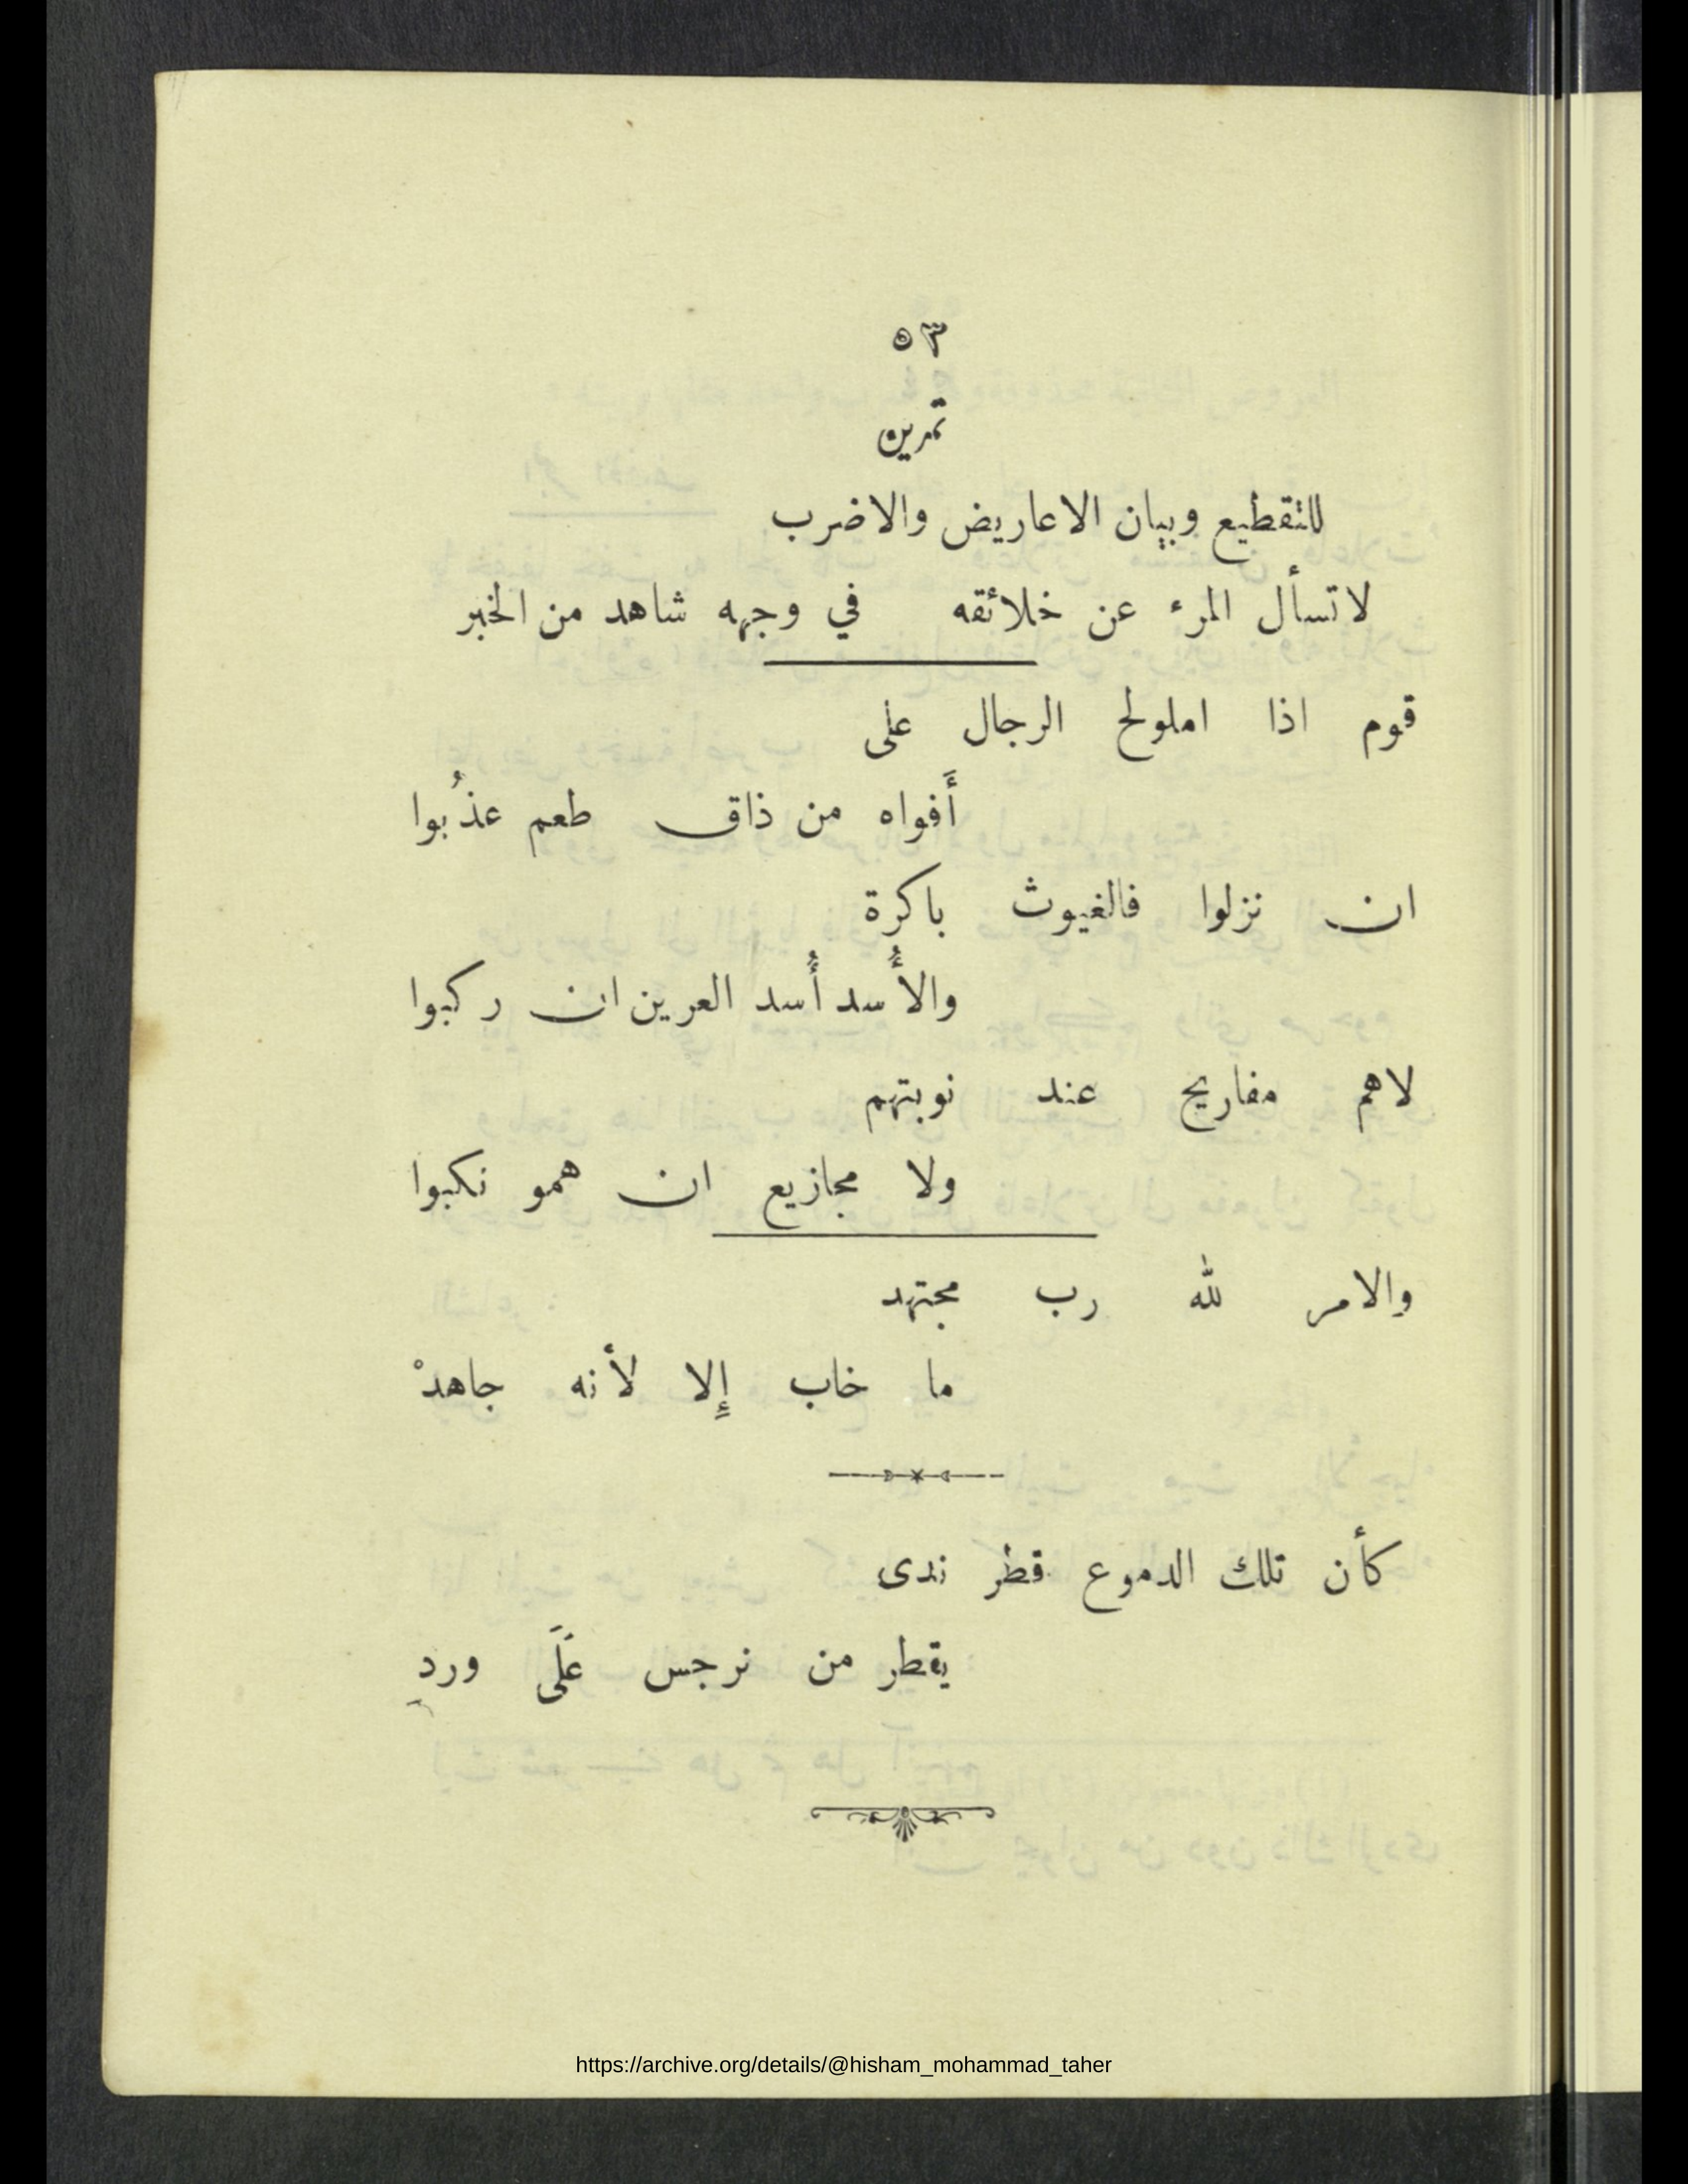 ٥٣
تمرين
للتقطيع وبيان الاعاريض والاضرب
لاتسأل المرء عن خلائقه في وجهه شاهد من الخبر
قوم اذا املولح الرجال على
أَفواه من ذاق طعم عذُبوا
ان نزلوا فالغيوث باكرة
والأُسد أُسد العرين ان ركبوا
لاهم مفاريح عند نوبتهم
ولا مجازيع ان همو نكبوا
والامر لله رب مجتهد
ما خاب إِلا لأنه جاهدْ
كأن تلك الدموع قطر ندى
يقطر من نرجس عَلَى وردِ
https://archive.org/details/@hisham_mohammad_taher